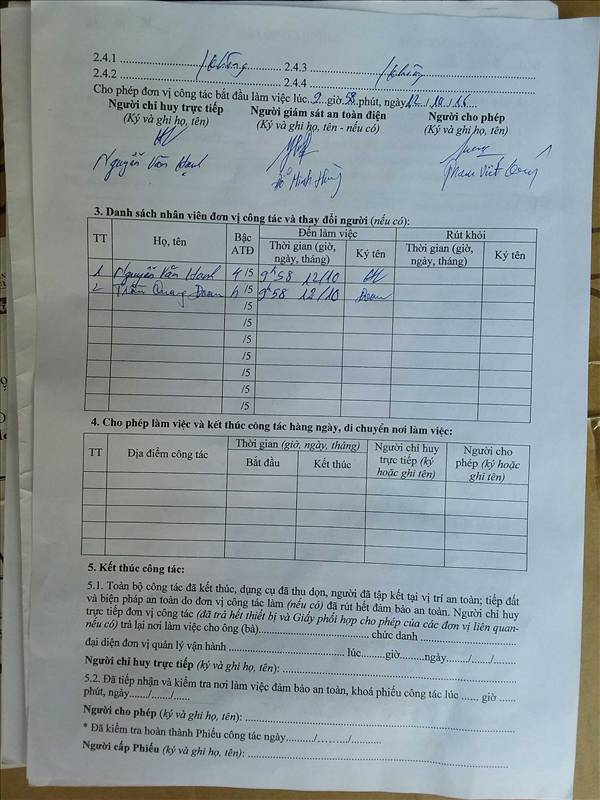 2.4.1 ........ Không ........ 2.4.3 ........ Không ........
2.4.2 ........ 2.4.4 ........
Cho phép đơn vị công tác bắt đầu làm việc lúc..9..giờ.58.phút, ngày12.../10./16...
Người chỉ huy trực tiếp Người giám sát an toàn điện Người cho phép
(Ký và ghi họ, tên) (Ký và ghi họ, tên - nếu có) (Ký và ghi họ, tên)
Nguyễn Văn Minh Hùng Phạm Viết
3. Danh sách nhân viên đơn vị công tác và thay đổi người (nếu có):
TT Họ, tên Bậc ATĐ Đến làm việc Rút khỏi
Thời gian (giờ, ngày, tháng) Ký tên Thời gian (giờ, ngày, tháng) Ký tên
1 Nguyễn Văn 4 /5 9h58 12/10
2 Trần Quang Đoan 4 /5 9h58 12/10 Đoan
/5
/5
/5
/5
/5
/5
/5
4. Cho phép làm việc và kết thúc công tác hàng ngày, di chuyển nơi làm việc:
TT Địa điểm công tác Thời gian (giờ, ngày, tháng) Người chỉ huy trực tiếp (ký hoặc ghi tên) Người cho phép (ký hoặc ghi tên)
Bắt đầu Kết thúc
5. Kết thúc công tác:
5.1. Toàn bộ công tác đã kết thúc, dụng cụ đã thu dọn, người đã tập kết tại vị trí an toàn; tiếp đất
và biện pháp an toàn do đơn vị công tác làm (nếu có) đã rút hết đảm bảo an toàn. Người chỉ huy
trực tiếp đơn vị công tác (đã trả hết thiết bị và Giấy phối hợp cho phép của các đơn vị liên quan-
nếu có) trả lại nơi làm việc cho ông (bà)........ chức danh ........
đại diện đơn vị quản lý vận hành ........ lúc........giờ.........ngày......./......./.......
Người chỉ huy trực tiếp (ký và ghi họ, tên): ........
5.2. Đã tiếp nhận và kiểm tra nơi làm việc đảm bảo an toàn, khoá phiếu công tác lúc ...... giờ ......
phút, ngày....../....../.....
Người cho phép (ký và ghi họ, tên): ........
* Đã kiểm tra hoàn thành Phiếu công tác ngày........../........./..........
Người cấp Phiếu (ký và ghi họ, tên): ........